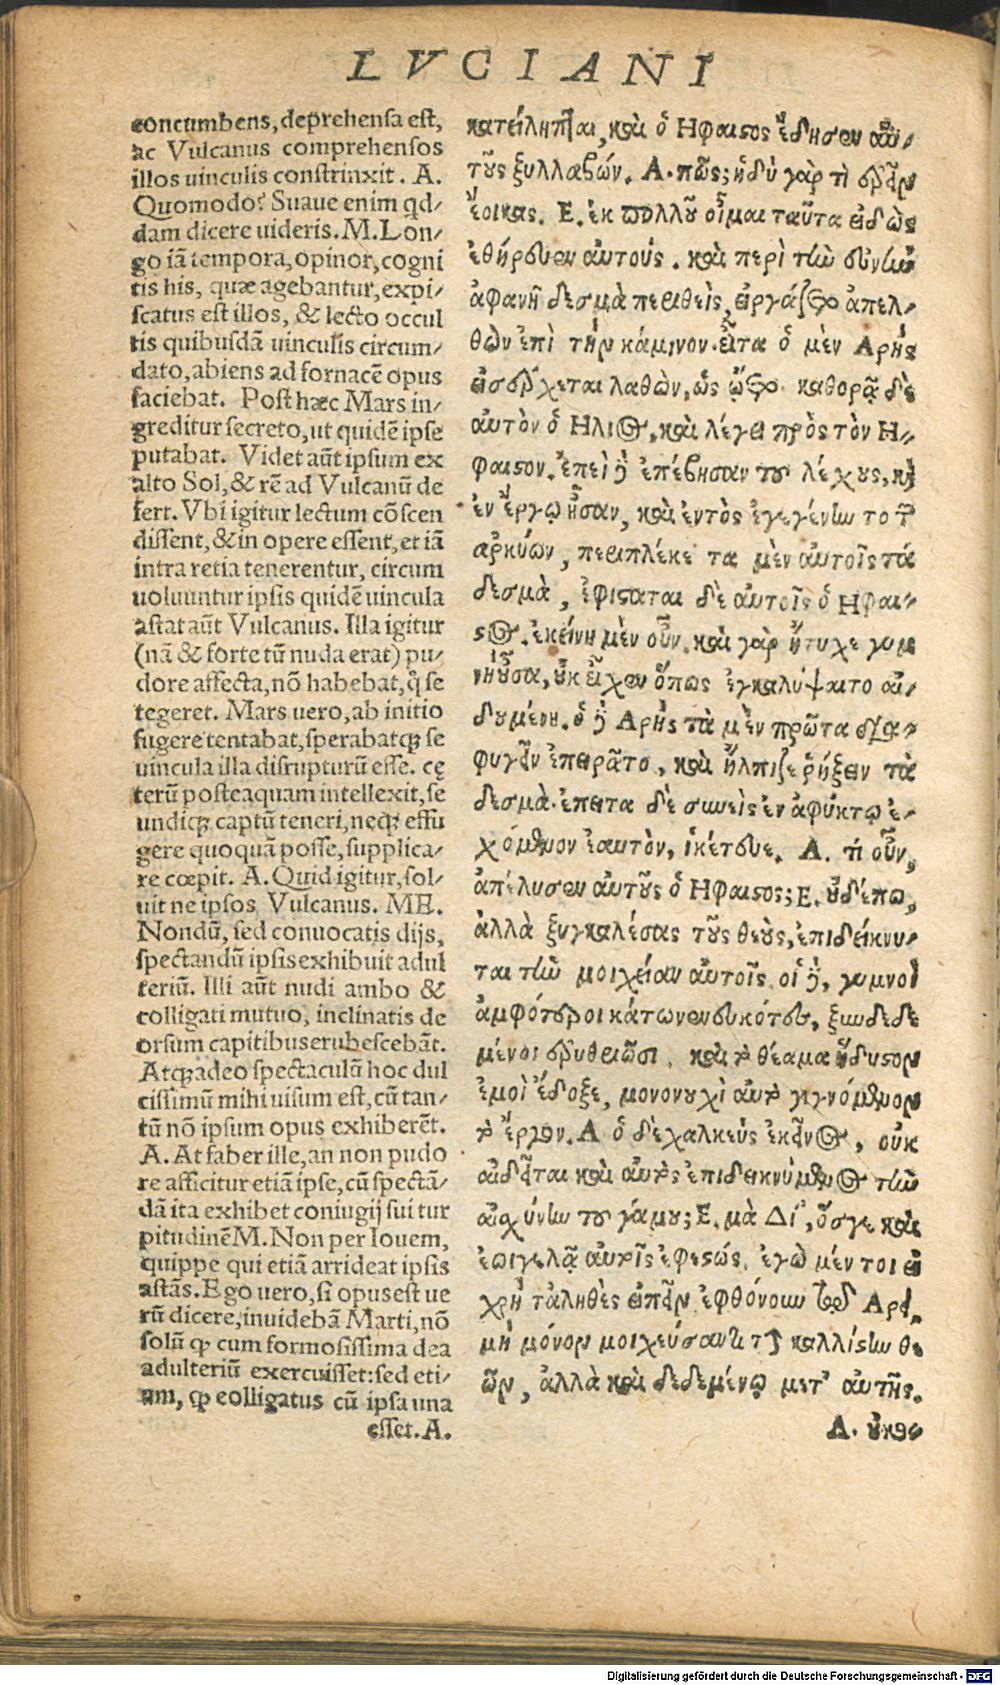 LVCIANI
concumbens, deprehensa est,
ac Vulcanus comprehensos
illos uinculis constrinxit. A.
Quomodo? Suaue enim qd/
dam dicere uideris. M. Lon/
go iã tempora, opinor, cogni
tis his, quæ agebantur, expi/
scatus est illos, & lecto occul
tis quibusdã uinculis circum/
dato, abiens ad fornacẽ opus
faciebat. Post hæc Mars in/
greditur secreto, ut quidẽ ipse
putabat. Videt aũt ipsum ex
alto Sol, & rẽ ad Vulcanũ de
fert. Vbi igitur lectum cõscen
dissent, & in opere essent, et iã
intra retia tenerentur, circum
uoluuntur ipsis quidẽ uincula
astat aũt Vulcanus. Illa igitur
(nã & forte tũ nuda erat) pu/
dore affecta, nõ habebat, q̃ se
tegeret. Mars uero, ab initio
fugere tentabat, sperabatq; se
uincula illa disrupturũ esse. cę
terũ posteaquam intellexit, se
undiq; captũ teneri, neq; effu
gere quoquã posse, supplica/
re cœpit. A. Quid igitur, sol/
uit ne ipsos Vulcanus. ME.
Nondũ, sed conuocatis dijs,
spectandũ ipsis exhibuit adul
teriũ. Illi aũt nudi ambo &
colligati mutuo, inclinatis de
orsum capitibus erubescebãt.
Atq; adeo spectaculũ hoc dul
cissimũ mihi uisum est, cũ tan/
tũ nõ ipsum opus exhiberẽt.
A. At faber ille, an non pudo
re afficitur etiã ipse, cũ spectã/
dã ita exhibet coniugij sui tur
pitudinẽ M. Non per Iouem,
quippe qui etiã arrideat ipsis
astãs. Ego uero, si opus est ue
rũ dicere, inuidebã Marti, nõ
solũ q; cum formosissima dea
adulteriũ exercuisset: sed eti/
am, q; colligatus cũ ipsa una
esset. A.
κατείληπται, καὶ ὁ Ηφαιστος ἔδησεν αὐ/
τοὺς ξυλλαβών. Α. πῶς; ἡδὺ γὰρ τὶ ἐρεῖν
ἔοικας. Ε. ἐκ πολλοῦ οἶμαι ταῦτα εἰδὼς
ἐθήρευεν αὐτούς. καὶ περὶ τὴν εὐνὴν
ἀφανῆ δεσμὰ περιθεὶς, εἰργάζετο ἀπελ-
θὼν ἐπὶ τὴν κάμινον. εἶτα ὁ μὲν Αρης
εἰσέρχεται λαθὼν, ὡς ᾤετο. καθορᾷ δὲ
αὐτὸν ὁ Ηλιος, καὶ λέγει πρὸς τὸν Η/
φαιστον. ἐπεὶ δὲ ἐπέβησαν τοῦ λέχους, καὶ
ἐν ἔργῳ ἦσαν, καὶ ἐντὸς ἐγεγένηντο τῶν
ἀρκύων, περιπλέκεται μὲν αὐτοῖς τὰ
δεσμὰ, ἐφίσταται δὲ αὐτοῖς ὁ Ηφαι/
στος. ἐκείνη μὲν οὖν. καὶ γὰρ ἔτυχε γυμ
νὴ οὖσα, οὐκ εἶχεν ὅπως ἐγκαλύψαιτο αἰ/
δουμένη. ὁ δὲ Αρης τὰ μὲν πρῶτα δια/
φυγεῖν ἐπειρᾶτο, καὶ ἤλπιζε ῥήξειν τὰ
δεσμὰ. ἔπειτα δὲ συνεὶς ἐν ἀφύκτῳ ἐ/
χόμενον ἑαυτὸν, ἱκέτευε. Α. τί οὖν,
ἀπέλυσεν αὐτοὺς ὁ Ηφαιστος; Ε. οὐδέπω,
ἀλλὰ ξυγκαλέσας τοὺς θεοὺς, ἐπιδείκνυ/
ται τὴν μοιχείαν αὐτοῖς. οἱ δὲ, γυμνοὶ
ἀμφότεροι κάτω νενευκότες, ξυνδεδε
μένοι ἐρυθριῶσι. καὶ τὸ θέαμα ἥδιστον
ἐμοὶ ἔδοξε, μονονουχὶ αὐτὸ γιγνόμενον
τὸ ἔργον. Α ὁ δὲ χαλκεὺς ἐκεῖνος, οὐκ
αἰδεῖται καὶ αὐτὸς ἐπιδεικνύμενος τὴν
αἰσχύνην τοῦ γάμου; Ε. μὰ Δί', ὅς γε καὶ
ἐπιγελᾷ αὐτοῖς ἐφεστώς. ἐγὼ μέντοι εἰ
χρὴ τἀληθὲς εἰπεῖν, ἐφθόνουν τῷ Αρει
μὴ μόνον μοιχεύσαντι τὴν καλλίστην θε
ῶν, ἀλλὰ καὶ δεδεμένῳ μετ' αὐτῆς.
Α. οὐκο/
Digitalisierung gefördert durch die Deutsche Forschungsgemeinschaft - DFG